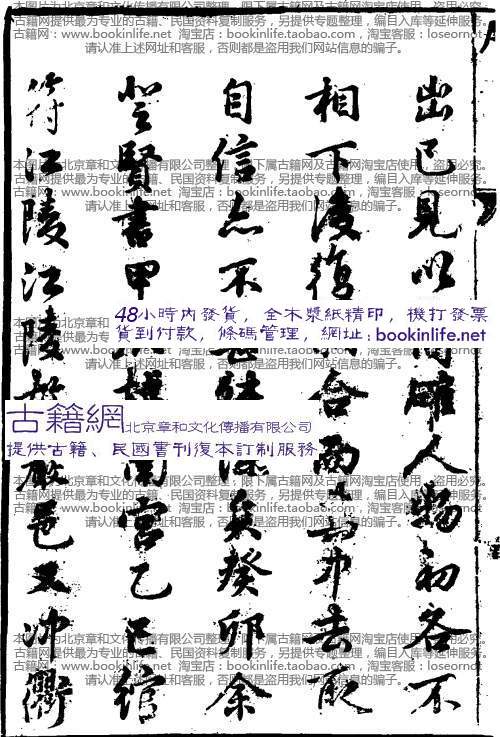 出己見以雕人物初各不
相下後復合而中去取
自信亦不矣癸卯余
登賢書甲南宮乙巳綰
符江陵江陵嚴邑又沖衢
本图片为北京章和文化传播有限公司整理，限下属古籍网及古籍网淘宝店使用，盗用必究。
古籍网提供最为专业的古籍、民国资料复制服务，另提供专题整理，编目入库等延伸服务。
古籍网：www.bookinlife.net 淘宝店：bookinlife.taobao.com，淘宝客服：loseornot
请认准上述网址和客服，否则都是盗用我们网站信息的骗子。
本图片为北京章和文化传播有限公司整理，限下属古籍网及古籍网淘宝店使用，盗用必究。
古籍网提供最为专业的古籍、民国资料复制服务，另提供专题整理，编目入库等延伸服务。
古籍网：www.bookinlife.net 淘宝店：bookinlife.taobao.com，淘宝客服：loseornot
请认准上述网址和客服，否则都是盗用我们网站信息的骗子。
48小時內發貨，全木漿紙精印，機打發票
貨到付款，條碼管理，網址：bookinlife.net
古籍網北京章和文化傳播有限公司
提供古籍、民國書刊復本訂制服務
本图片为北京章和文化传播有限公司整理，限下属古籍网及古籍网淘宝店使用，盗用必究。
古籍网提供最为专业的古籍、民国资料复制服务，另提供专题整理，编目入库等延伸服务。
古籍网：www.bookinlife.net 淘宝店：bookinlife.taobao.com，淘宝客服：loseornot
请认准上述网址和客服，否则都是盗用我们网站信息的骗子。
本图片为北京章和文化传播有限公司整理，限下属古籍网及古籍网淘宝店使用，盗用必究。
古籍网提供最为专业的古籍、民国资料复制服务，另提供专题整理，编目入库等延伸服务。
古籍网：www.bookinlife.net 淘宝店：bookinlife.taobao.com，淘宝客服：loseornot
请认准上述网址和客服，否则都是盗用我们网站信息的骗子。